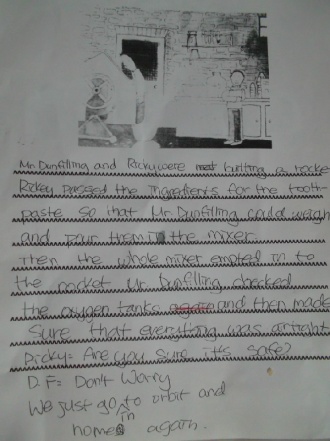 Mr. Dunfilling and Ricky were builting a rocke
Rickey passed the Ingredients for the tooth-
paste so that Mr. Dunfilling could weigh
and pour them in the mixer.
Then the whole mixer emptied in to
the rocket Mr. Dunfilling checked
the oxygen tanks again and then made
sure that everything was airtight
Ricky: Are you sure it's safe?
D.F: Don't Worry
We just go to orbit and
in
home again.